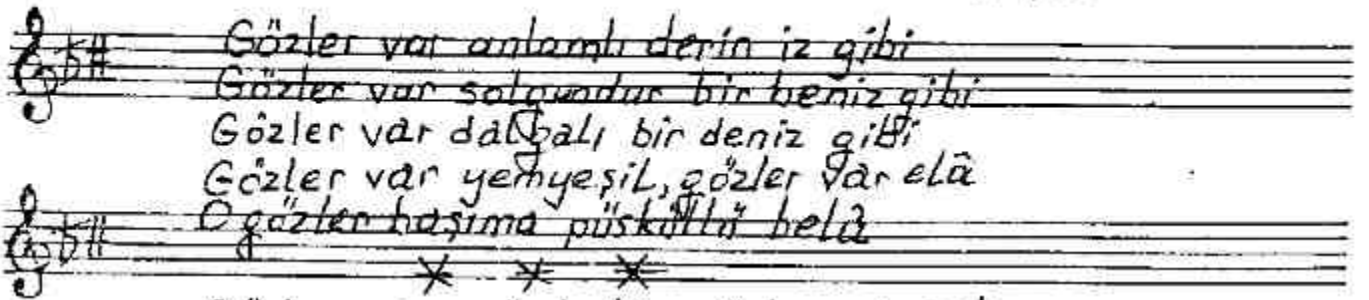 Gözler var anlamlı derin iz gibi
Gözler var solgundur bir beniz gibi
Gözler var dalgalı bir deniz gibi
Gözler var yemyeşil, gözler var elâ
O gözler başıma püsküllü belâ